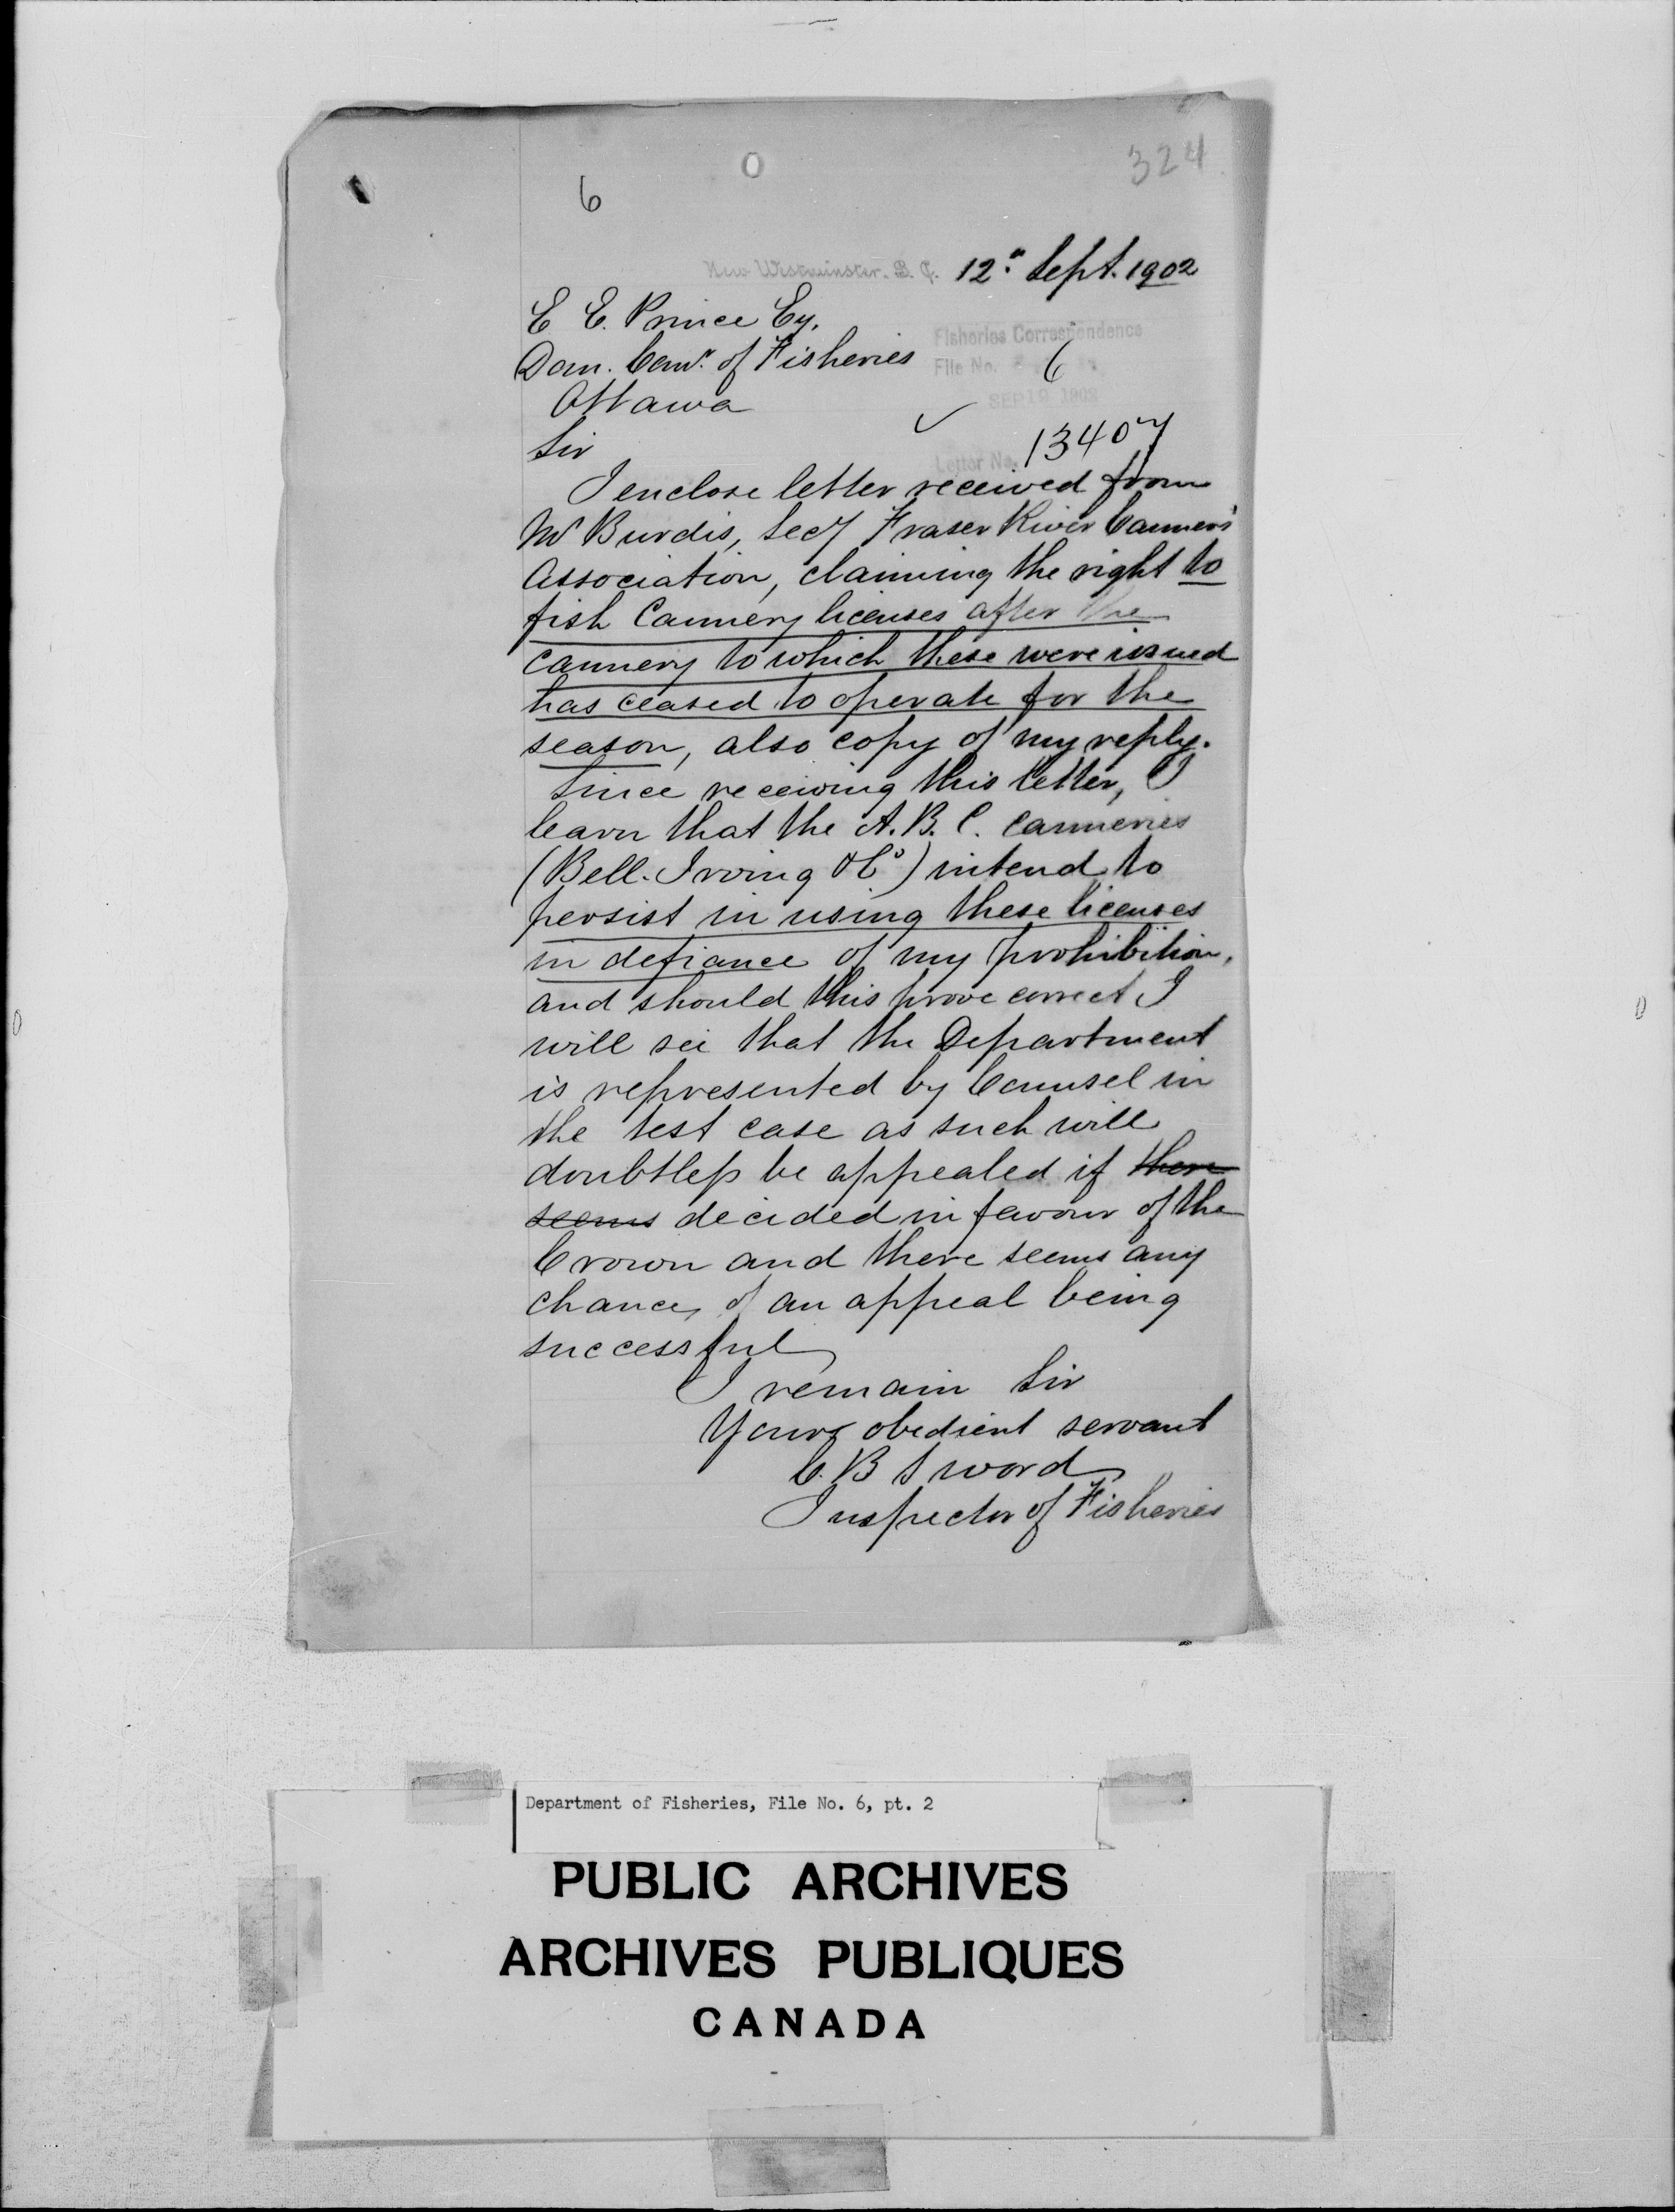 324
6
New Westminster. B. C. 12th Sept. 1902
E E. Prince Esq.
Dom. Comr. of Fisheries
Ottawa
Fisheries Correspondence
File No. 6
SEP 19 1902
Letter No. 13407
Sir
I enclose letter received from
Mr Burdis, Secy Fraser River Canners'
Association, claiming the right to
fish Cannery licenses after the
cannery to which these were issued
has ceased to operate for the
season, also copy of my reply.
Since receiving this letter, I
learn that the A. B. C. Canneries
(Bell-Irving & Co) intend to
persist in using these licenses
in defiance of my prohibition,
and should this prove correct I
will see that the Department
is represented by Counsel in
the test case as such will
doubtless be appealed if there
seems decided in favour of the
Crown and there seems any
chance of an appeal being
successful
I remain Sir
Your obedient servant
C. B Sword
Inspector of Fisheries
Department of Fisheries, File No. 6, pt. 2
PUBLIC ARCHIVES
ARCHIVES PUBLIQUES
CANADA